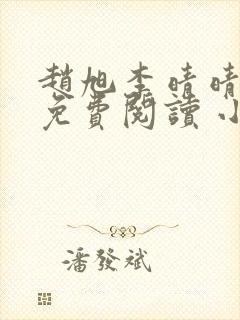 趙旭李晴晴
免費閱讀小
潘發斌